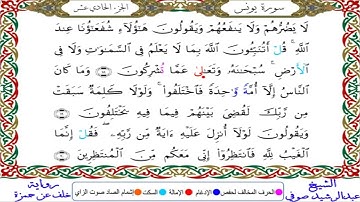 سورة يونس
الجزء الحادي عشر
لَا يَضُرُّهُمْ وَلَا يَنفَعُهُمْ وَيَقُولُونَ هَٰٓؤُلَآءِ شُفَعَٰٓؤُنَا عِندَ
ٱللَّهِ ۚ قُلْ أَتُنَبِّـُٔونَ ٱللَّهَ بِمَا لَا يَعْلَمُ فِى ٱلسَّمَٰوَٰتِ وَلَا فِى
ٱلْأَرْضِ ۚ سُبْحَٰنَهُۥ وَتَعَٰلَىٰ عَمَّا تُشْرِكُونَ ۝ وَمَا كَانَ
ٱلنَّاسُ إِلَّآ أُمَّةً وَٰحِدَةً فَٱخْتَلَفُوا۟ ۚ وَلَوْلَا كَلِمَةٌ سَبَقَتْ
مِن رَّبِّكَ لَقُضِىَ بَيْنَهُمْ فِيمَا فِيهِ يَخْتَلِفُونَ ۝
وَيَقُولُونَ لَوْلَآ أُنزِلَ عَلَيْهِ ءَايَةٌ مِّن رَّبِّهِۦ ۖ فَقُلْ إِنَّمَا
ٱلْغَيْبُ لِلَّهِ فَٱنتَظِرُوٓا۟ إِنِّى مَعَكُم مِّنَ ٱلْمُنتَظِرِينَ ۝
الشيخ
عبدالرشيد صوفي
الحرف المخالف لحفص
الإدغام
الإمالة
السكت
إشمام الصاد صوت الزاي
رواية
خلف عن حمزة